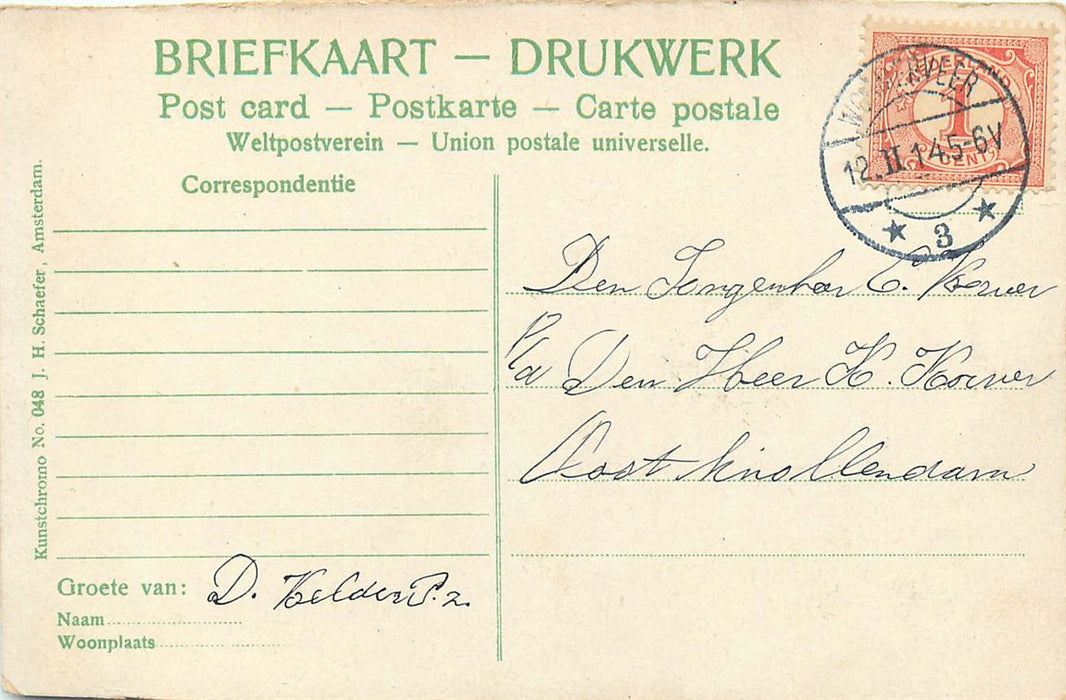 BRIEFKAART — DRUKWERK
Post card — Postkarte — Carte postale
Weltpostverein — Union postale universelle.
Correspondentie
Kunstchromo No. 048 J. H. Schaefer, Amsterdam.
NEDERLAND
1
CENT
WORMERVEER
12.II.14 5-6V
★ 3 ★
Den Jongenheer C. Korver
P/a Den Heer K. Korver
Oost Knollendam
Groete van: D. Kelder P.z.
Naam
Woonplaats